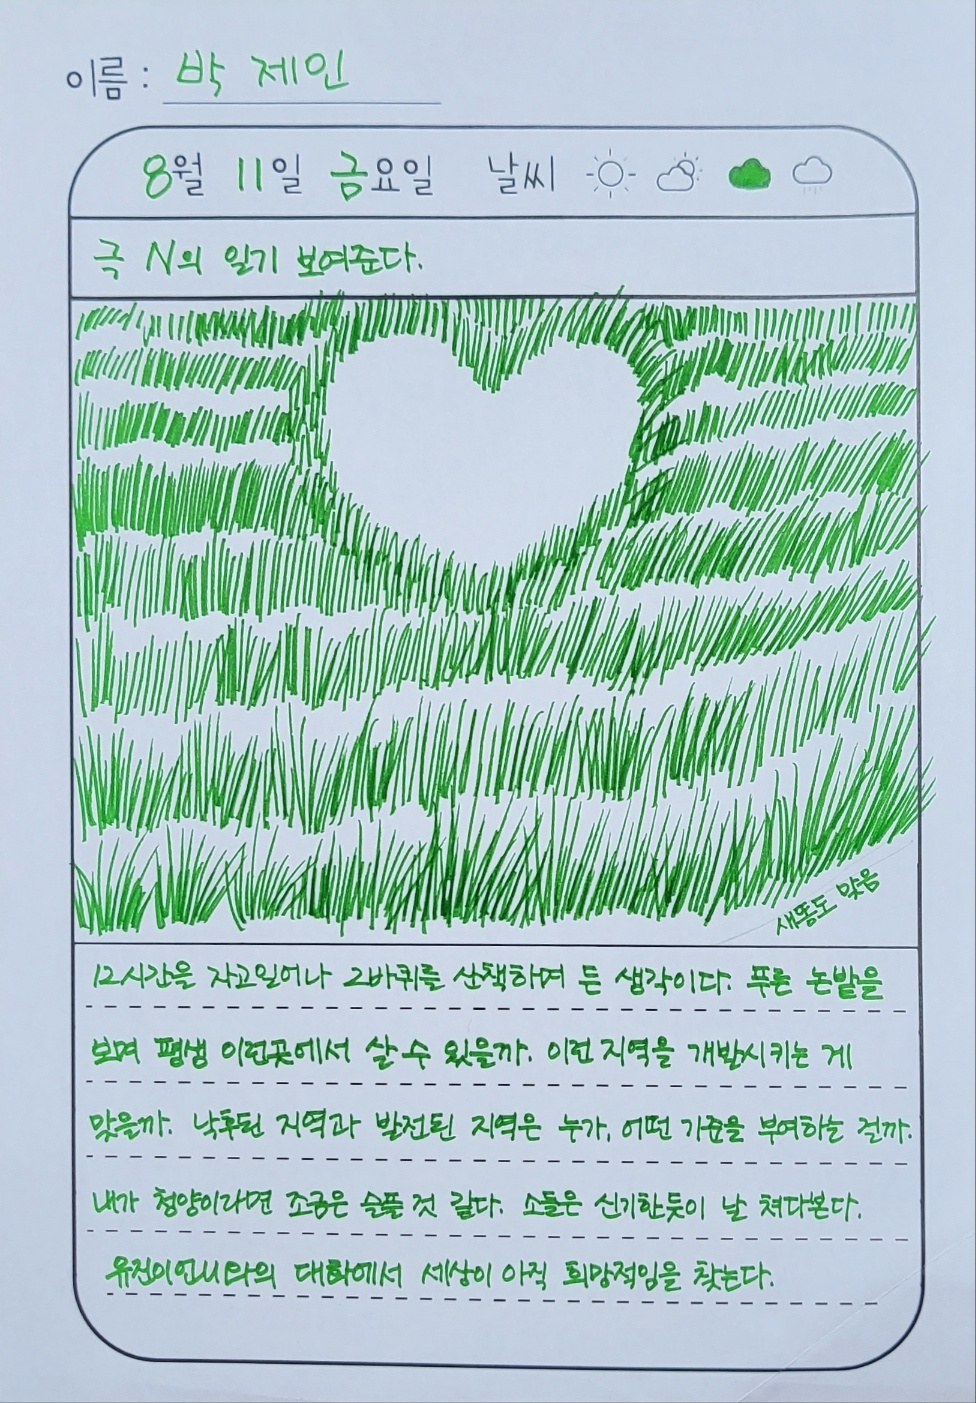 이름 : 박 제인
8월 11일 금요일 날씨
극 N의 일기 보여준다.
새똥도 맞음
12시간을 자고일어나 2바퀴를 산책하며 든 생각이다. 푸른 논밭을
보며 평생 이런곳에서 살 수 있을까. 이런 지역을 개발시키는 게
맞을까. 낙후된 지역과 발전된 지역은 누가, 어떤 기준을 부여하는 걸까.
내가 청양이라면 조금은 슬플 것 같다. 소들은 신기한듯이 날 쳐다본다.
유진이언니와의 대화에서 세상이 아직 희망적임을 찾는다.